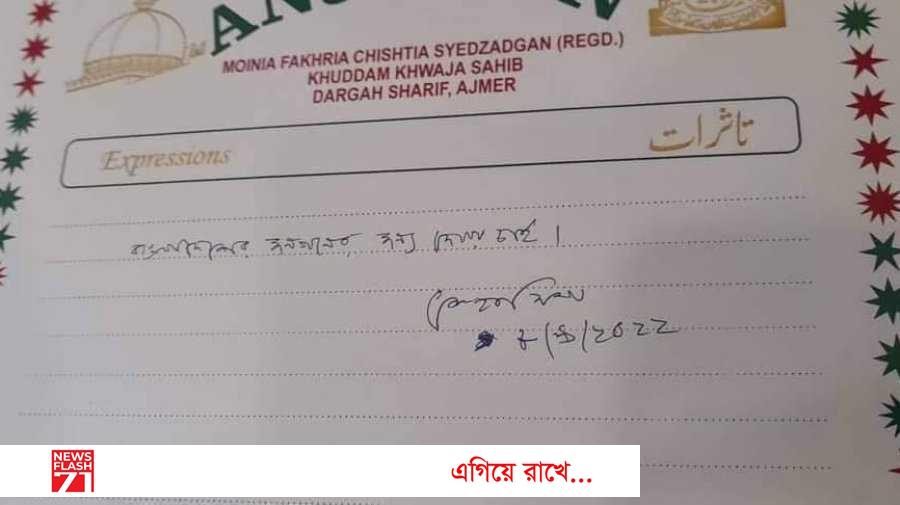 MOINIA FAKHRIA CHISHTIA SYEDZADGAN (REGD.)
KHUDDAM KHWAJA SAHIB
DARGAH SHARIF, AJMER
Expressions
تاثرات
বাংলাদেশের জনগনের জন্য দোয়া চাই।
NEWS
FLASH
71
এগিয়ে রাখে...